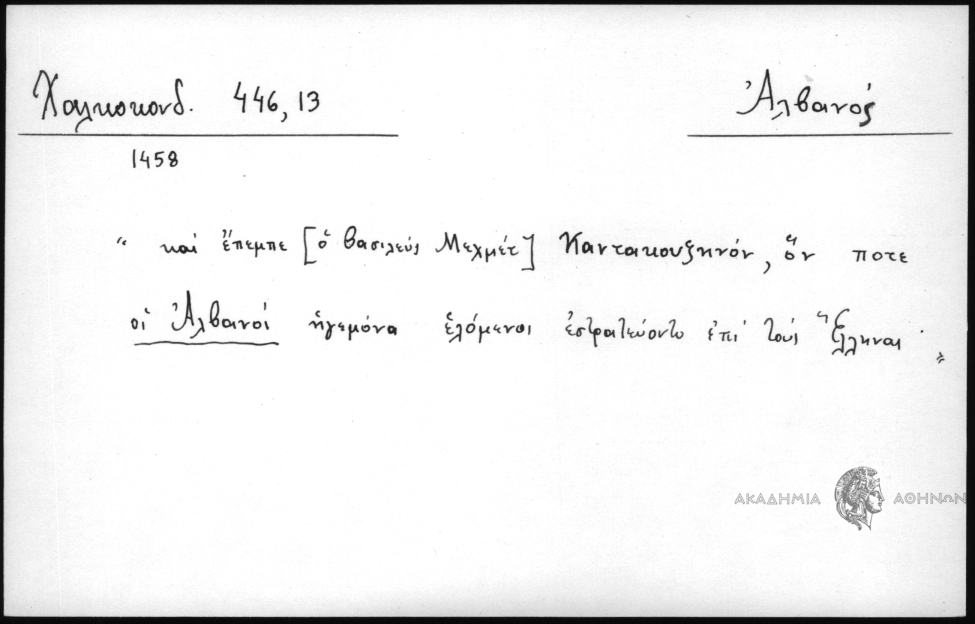 Χαλκοκονδ. 446, 13
Ἀλβανός
1458
“ καὶ ἔπεμπε [ὁ βασιλεὺς Μεχμέτ] Καντακουζηνόν, ὅν ποτε
οἱ Ἀλβανοί ἡγεμόνα ἑλόμενοι ἐστρατεύοντο ἐπὶ τοὺς Ἕλληνας . ”
ΑΚΑΔΗΜΙΑ ΑΘΗΝΩΝ